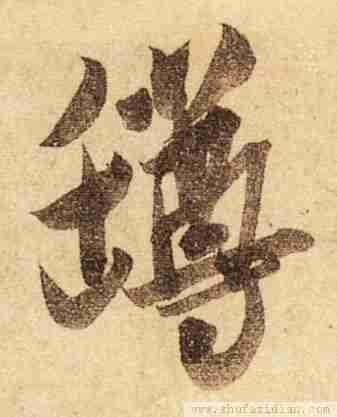 罇
www.shufazidian.com